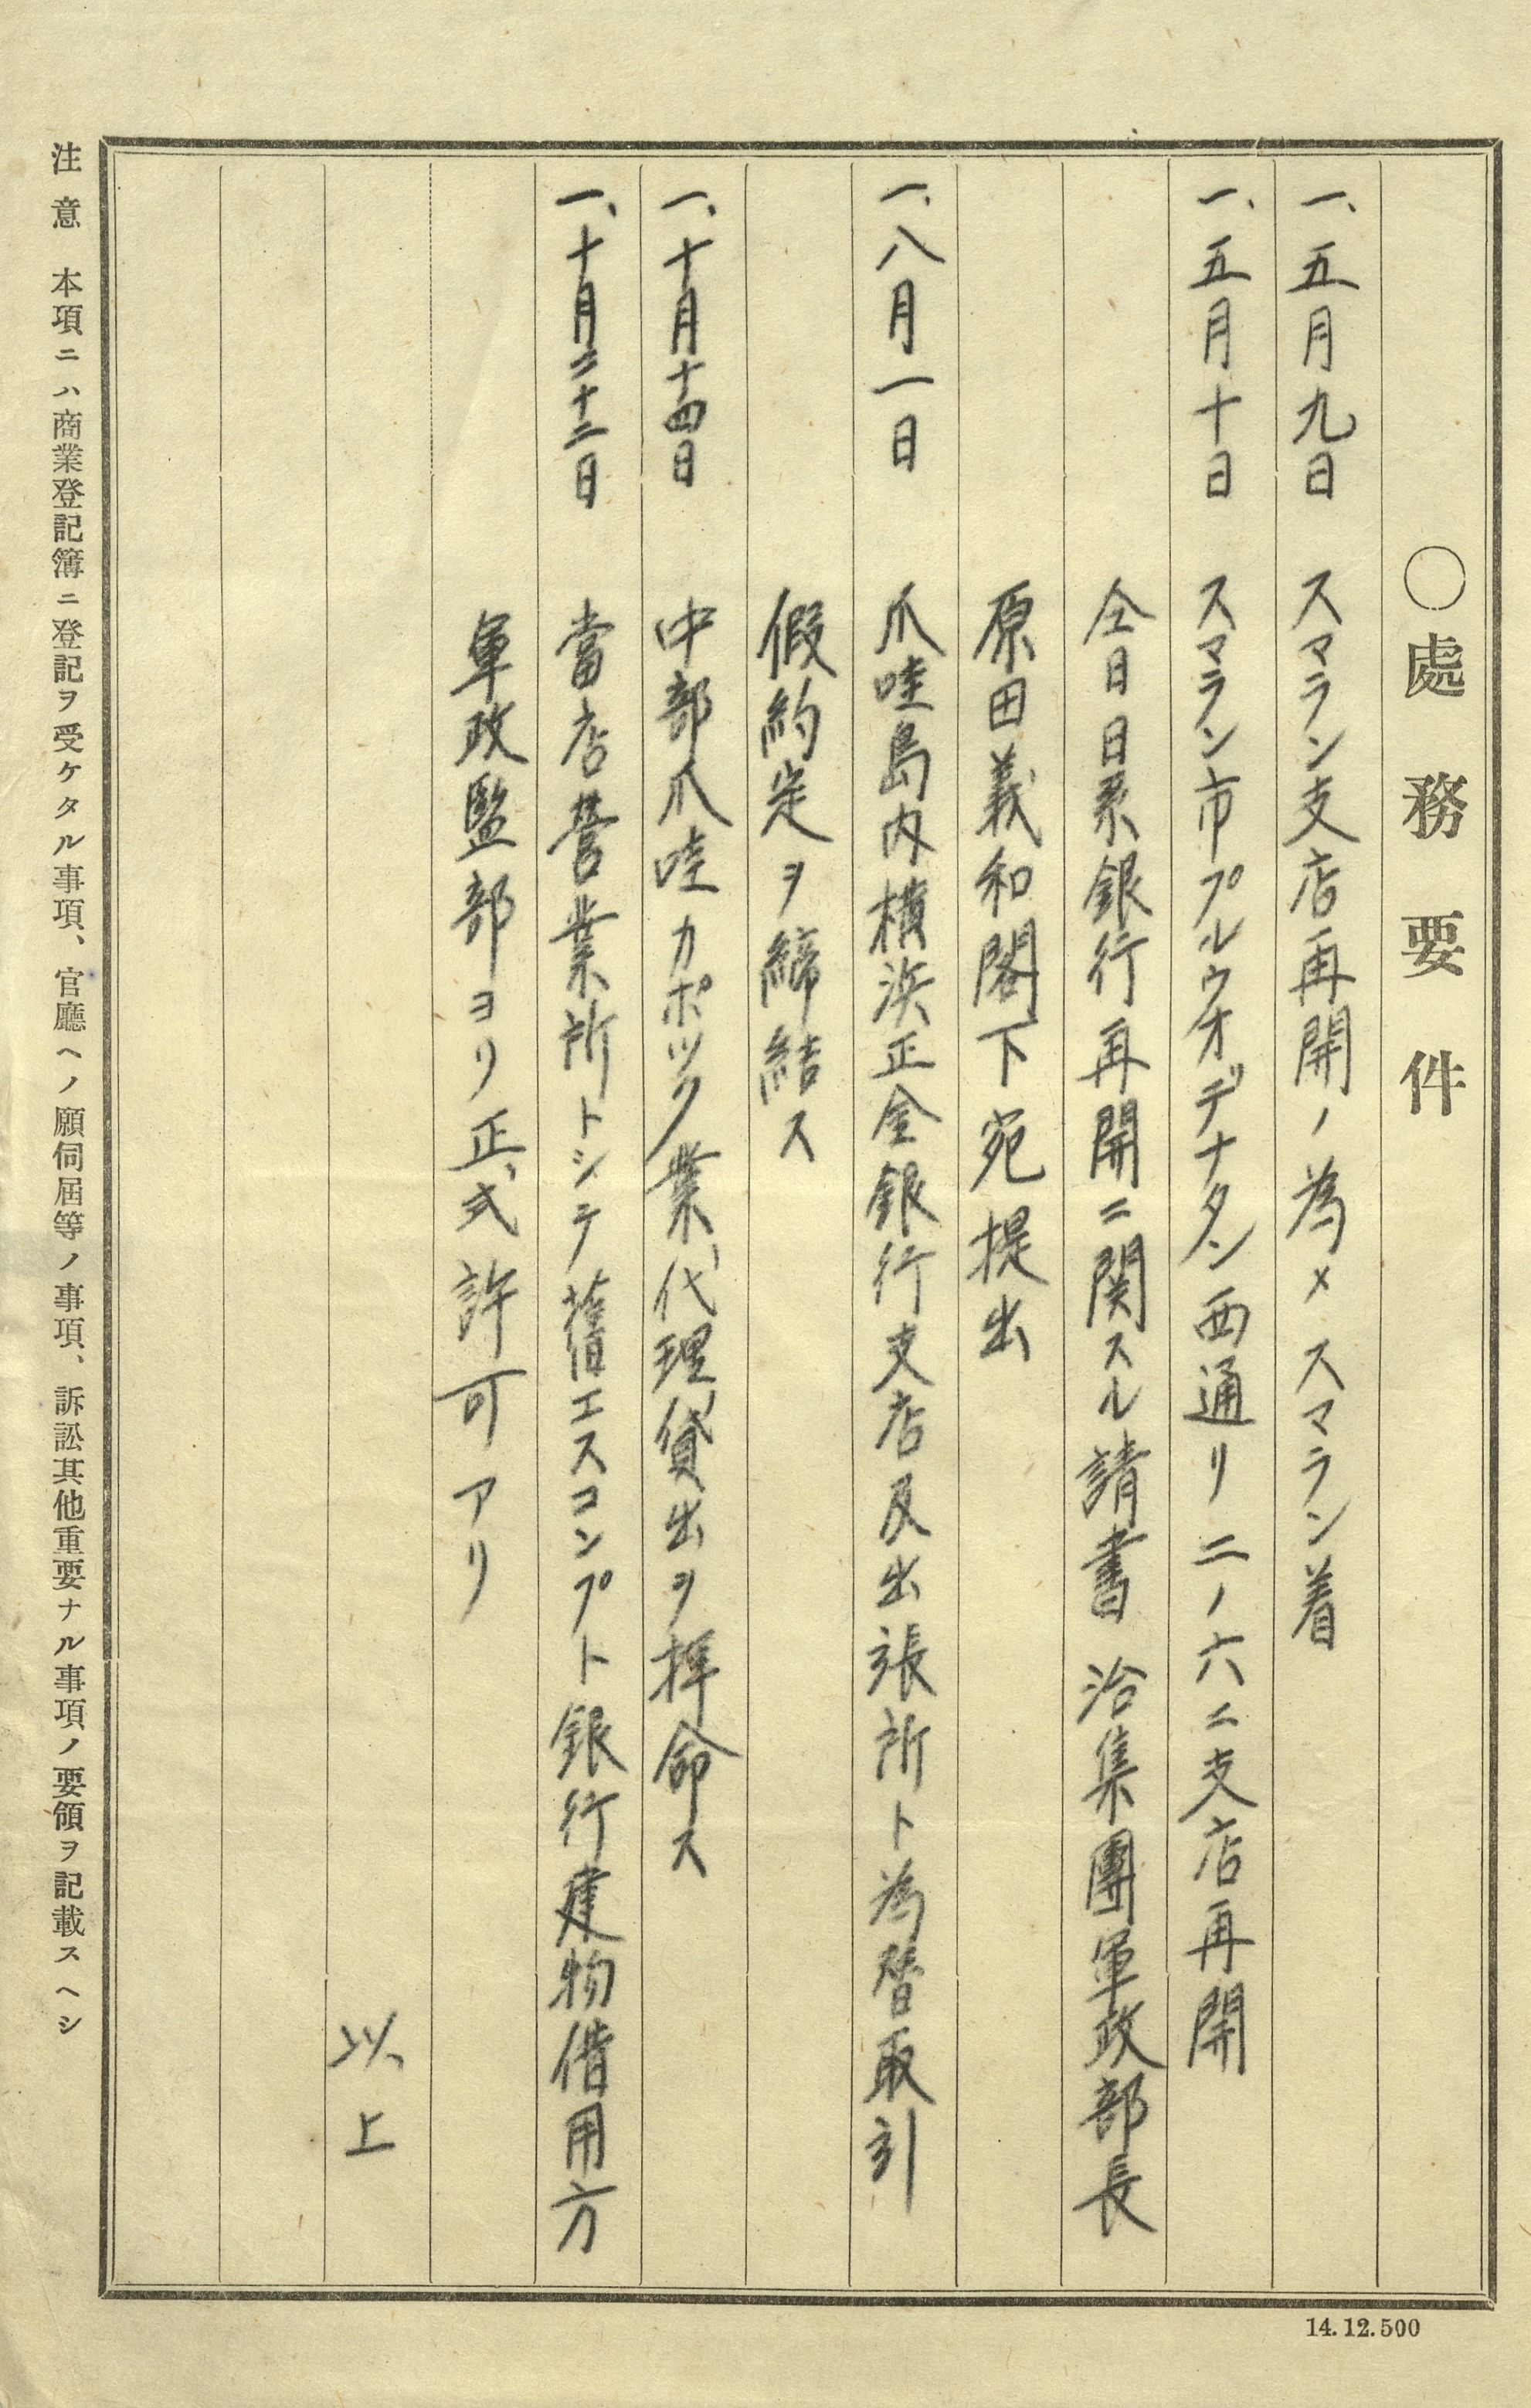 〇處務要件
一、五月九日 スマラン支店再開ノ為メスマラン着
一、五月十日 スマラン市プルウオデナタン西通リ二ノ六ニ支店再開
仝日日系銀行再開ニ関スル請書 治集團軍政部長
原田義和閣下宛提出
一、八月一日 爪哇島内横浜正金銀行支店及出張所ト為替取引
假約定ヲ締結ス
一、十月十四日 中部爪哇カポツク業、代理貸出ヲ拝命ス
一、十月二十二日 當店營業所トシテ舊エスコンプト銀行建物借用方
軍政監部ヨリ正式許可アリ
以上
注意 本項ニハ商業登記簿ニ登記ヲ受ケタル事項、官廳ヘノ願伺屆等ノ事項、訴訟其他重要ナル事項ノ要領ヲ記載スヘシ
14.12.500